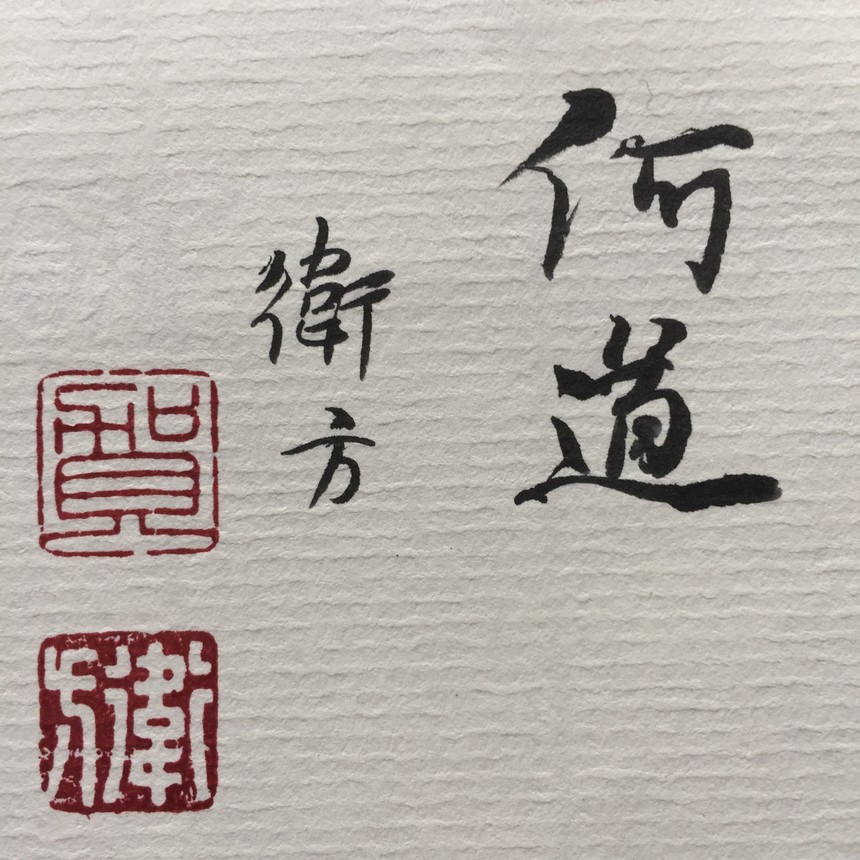 何道
衛方
賀
衛方